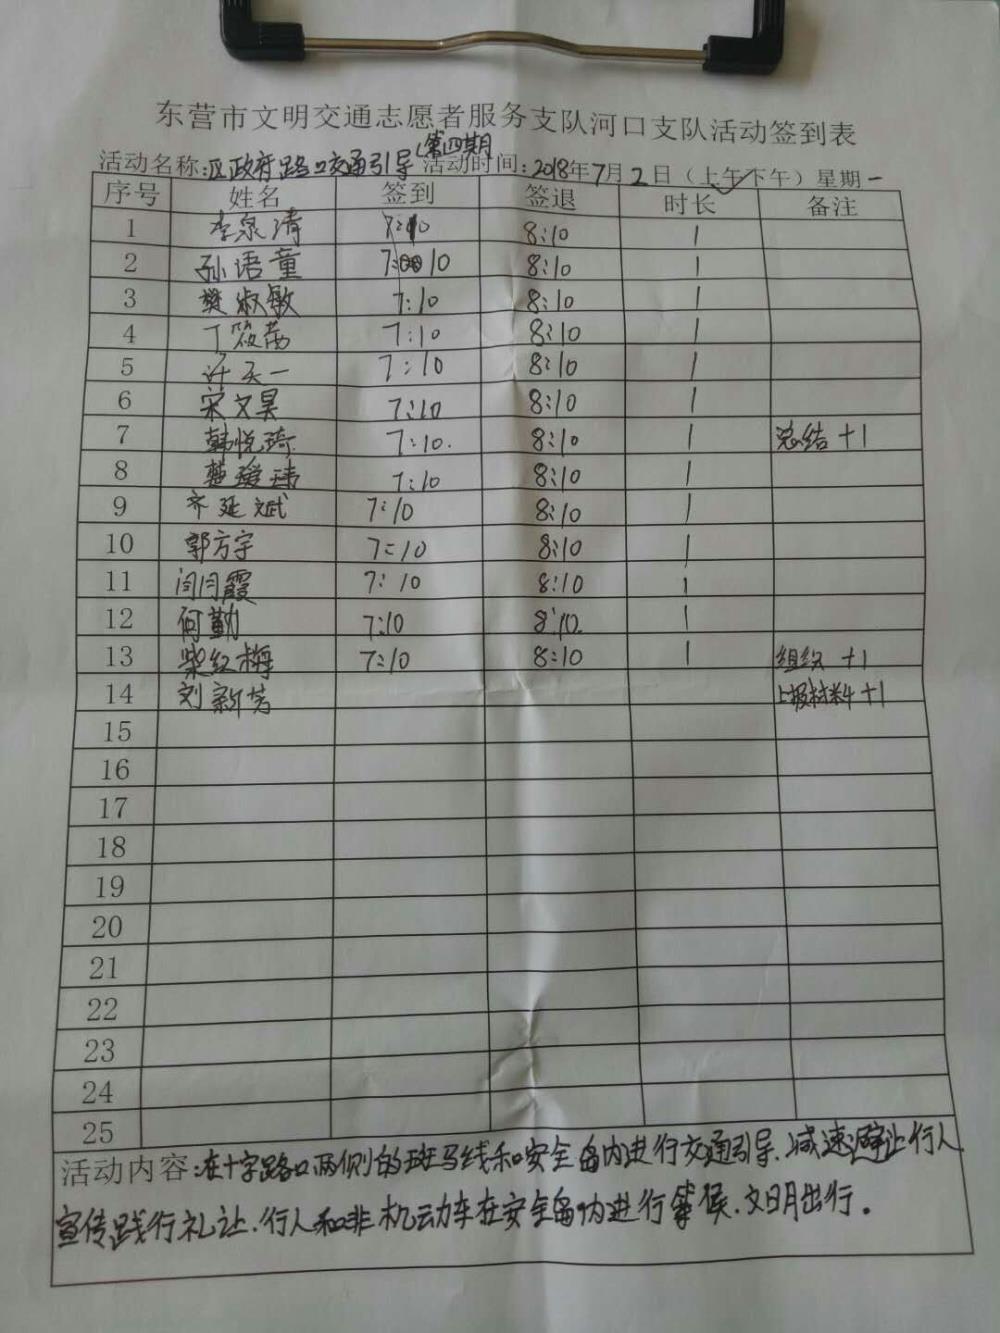 东营市文明交通志愿者服务支队河口支队活动签到表
活动名称:区政府路口交通引导(第四期 活动时间:2018年7月2日(上午下午)星期一
序号 姓名 签到 签退 时长 备注
1 李泉清 7:10 8:10 1
2 孙语童 7:10 8:10 1
3 樊淑敏 7:10 8:10 1
4 丁筱茜 7:10 8:10 1
5 许天一 7:10 8:10 1
6 宋文昊 7:10 8:10 1
7 韩悦琦 7:10. 8:10 1 总结+1
8 7:10 8:10 1
9 齐延斌 7:10 8:10 1
10 郭方宇 7:10 8:10 1
11 闫月霞 7:10 8:10 1
12 何勤 7:10 8:10. 1
13 柴红梅 7:10 8:10 1 组织 +1
14 刘新芳 上报材料+1
15
16
17
18
19
20
21
22
23
24
25
活动内容:在十字路口两侧的斑马线和安全岛内进行交通引导.减速避让行人
宣传践行礼让.行人和非机动车在安全岛内进行等候.文明出行。